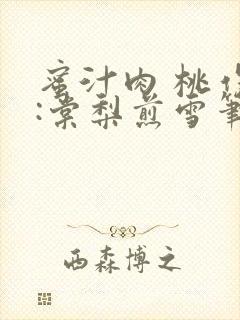 蜜汁肉桃作
:棠梨煎雪筆
西森博之